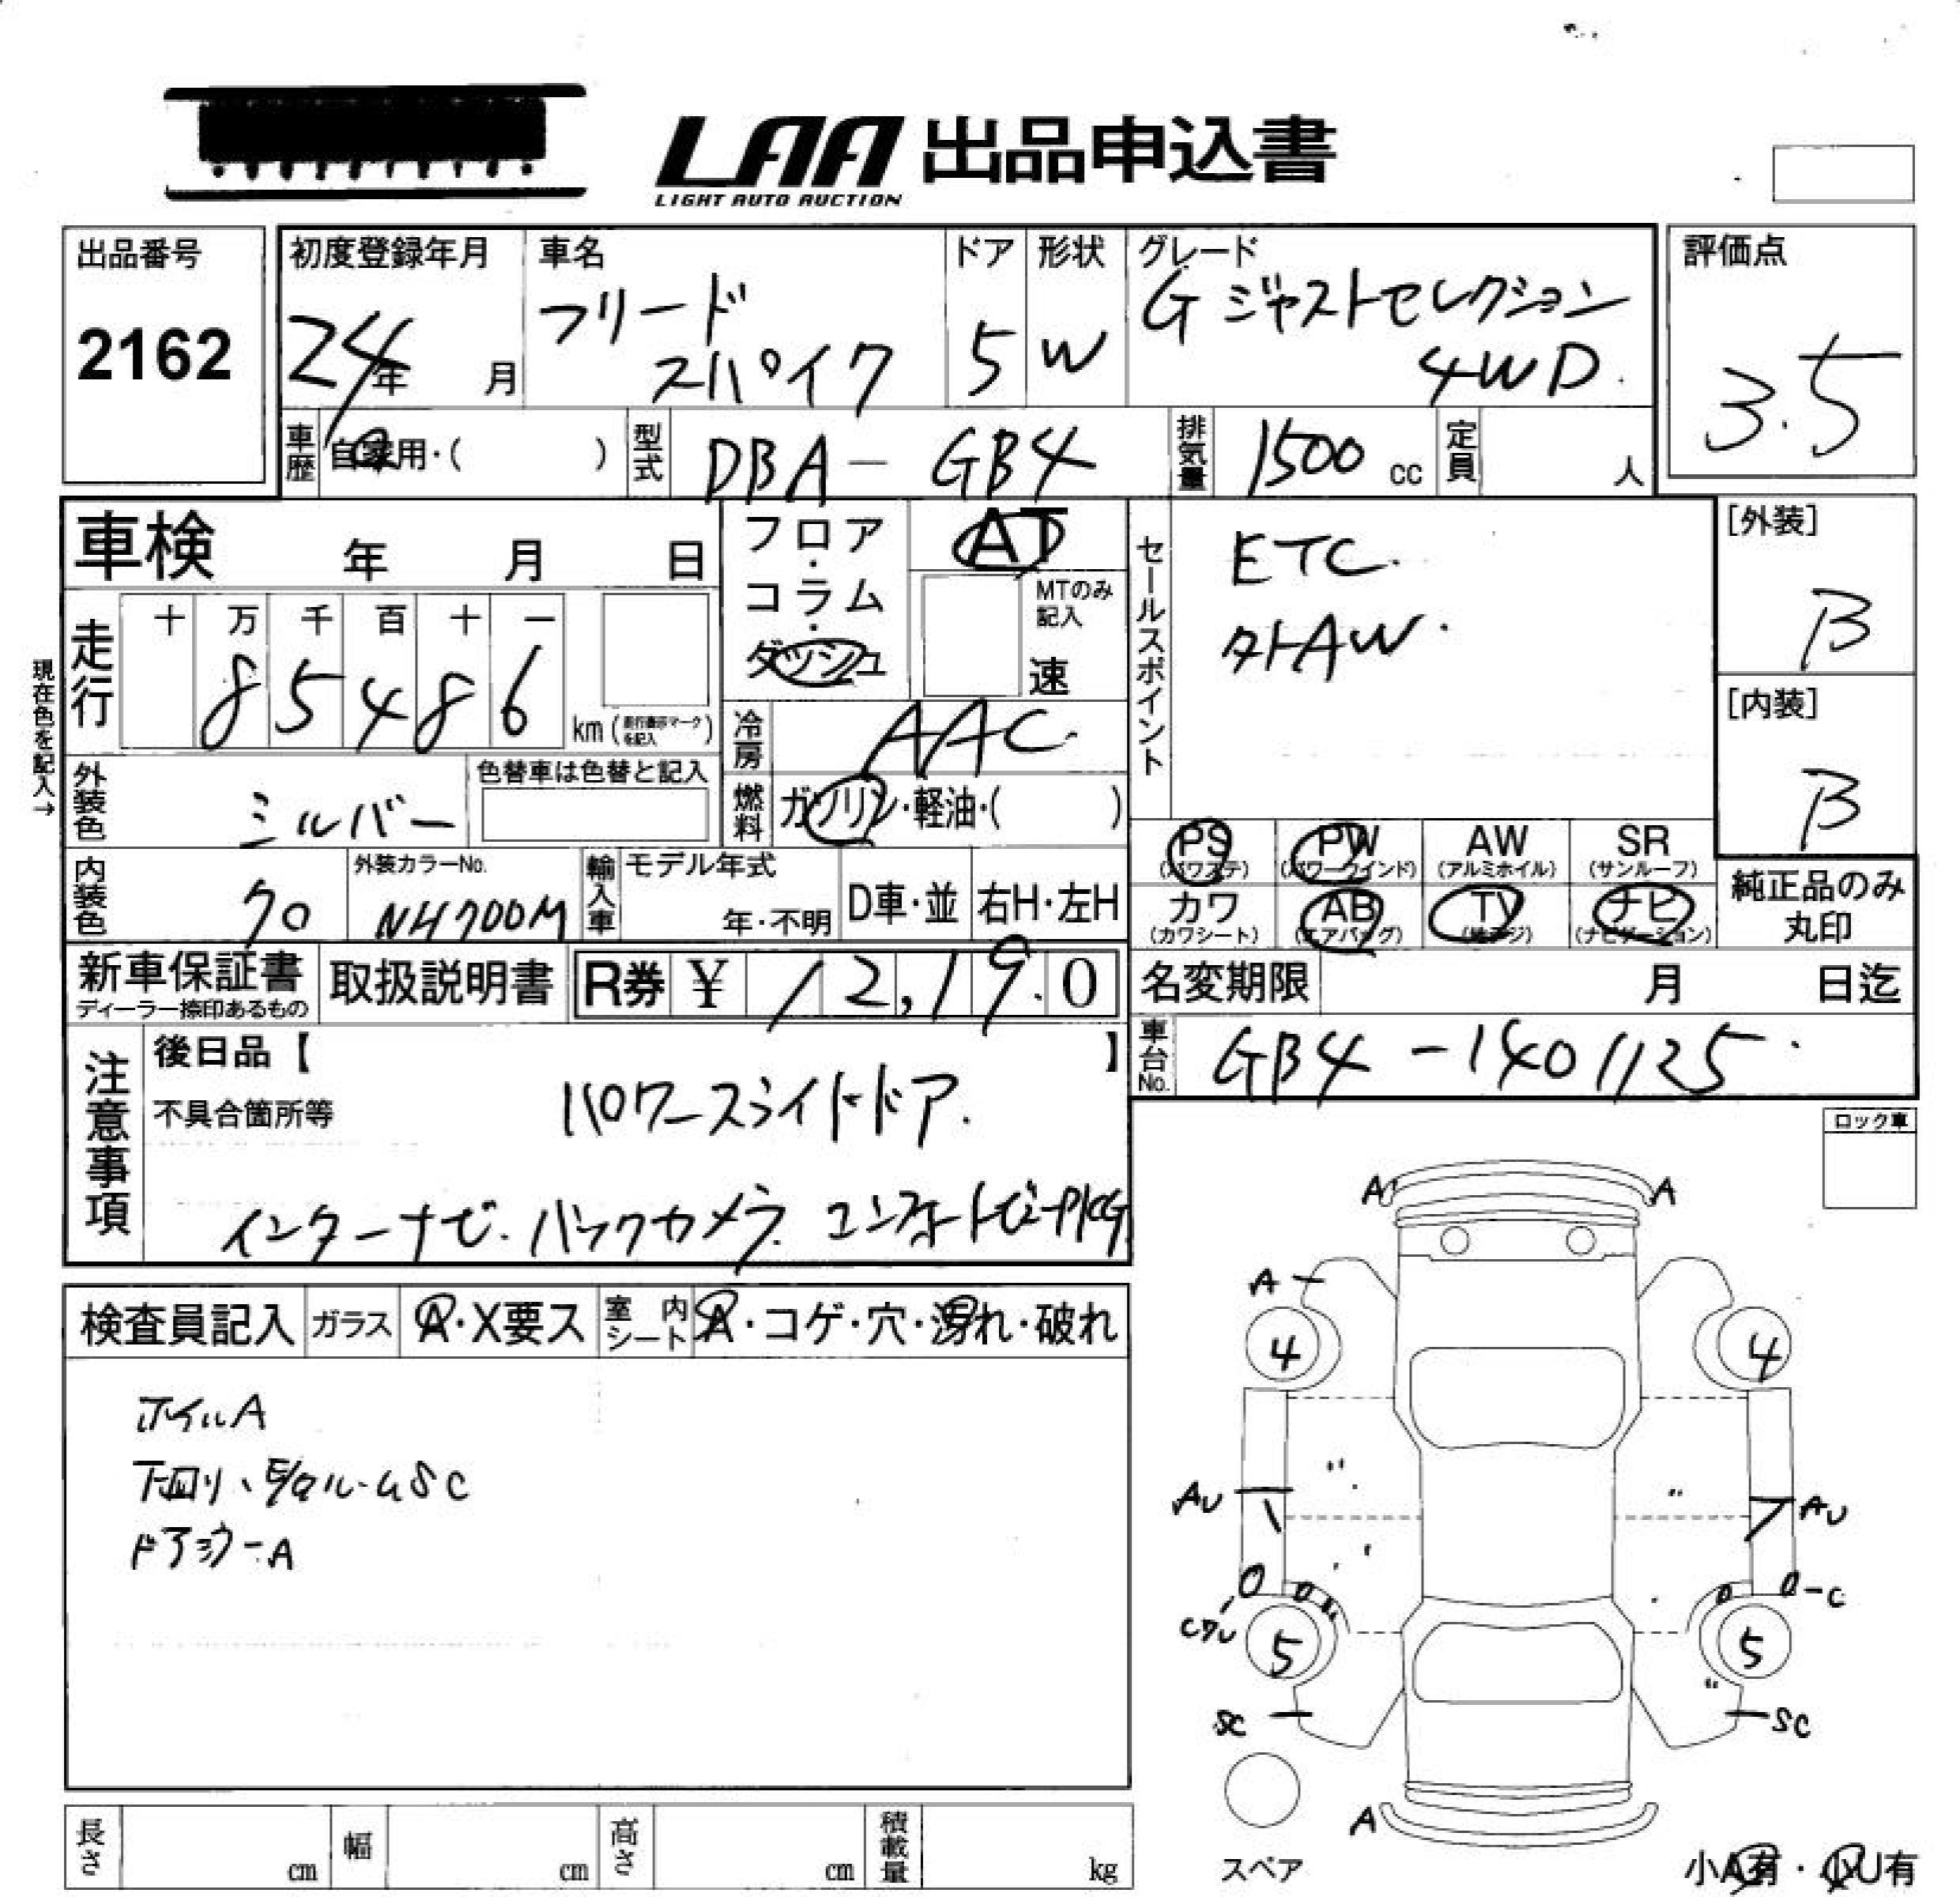 LAA 出品申込書
LIGHT AUTO AUCTION
出品番号
2162
初度登録年月
24年 月
車名
フリード
スパイク
ドア
5
形状
W
グレード
G ジャストセレクション
4WD.
評価点
3.5
車歴
自家用・( )
型式
DBA-GB4
排気量
1500 cc
定員
人
車検 年 月 日
フロア・コラム・ダッシュ
AT
MTのみ記入
速
セールスポイント
ETC.
外AW.
[外装]
B
[内装]
B
現在色を記入→
走行
十 万 千 百 十 一
85486
km (走行表示マークを記入)
冷房
AAC.
外装色
シルバー
色替車は色替と記入
燃料
ガソリン・軽油・( )
内装色
クロ
外装カラーNo.
NH700M
輸入車
モデル年式
年・不明
D車・並
右H・左H
PS (パワステ)
PW (パワーウインド)
AW (アルミホイル)
SR (サンルーフ)
カワ (カワシート)
AB (エアバッグ)
TV
ナビ (ナビゲーション)
純正品のみ
丸印
新車保証書
ディーラー捺印あるもの
取扱説明書
R券 ¥ 12,190
名変期限 月 日迄
車台No.
GB4-1401125.
注意事項
後日品【 】
不具合箇所等
パワースライドドア.
インターナビ. バックカメラ. コンフォートビューPKG
ロック車
検査員記入
ガラス
A・X要ス
室内シート
A・コゲ・穴・汚れ・破れ
ホイルA
下回り、Eタルーム SC
ドアミラーA
A A
A
4 4
AU AU
C
5 5
SC SC
A
スペア
小A有・小U有
長さ cm
幅 cm
高さ cm
積載量 kg